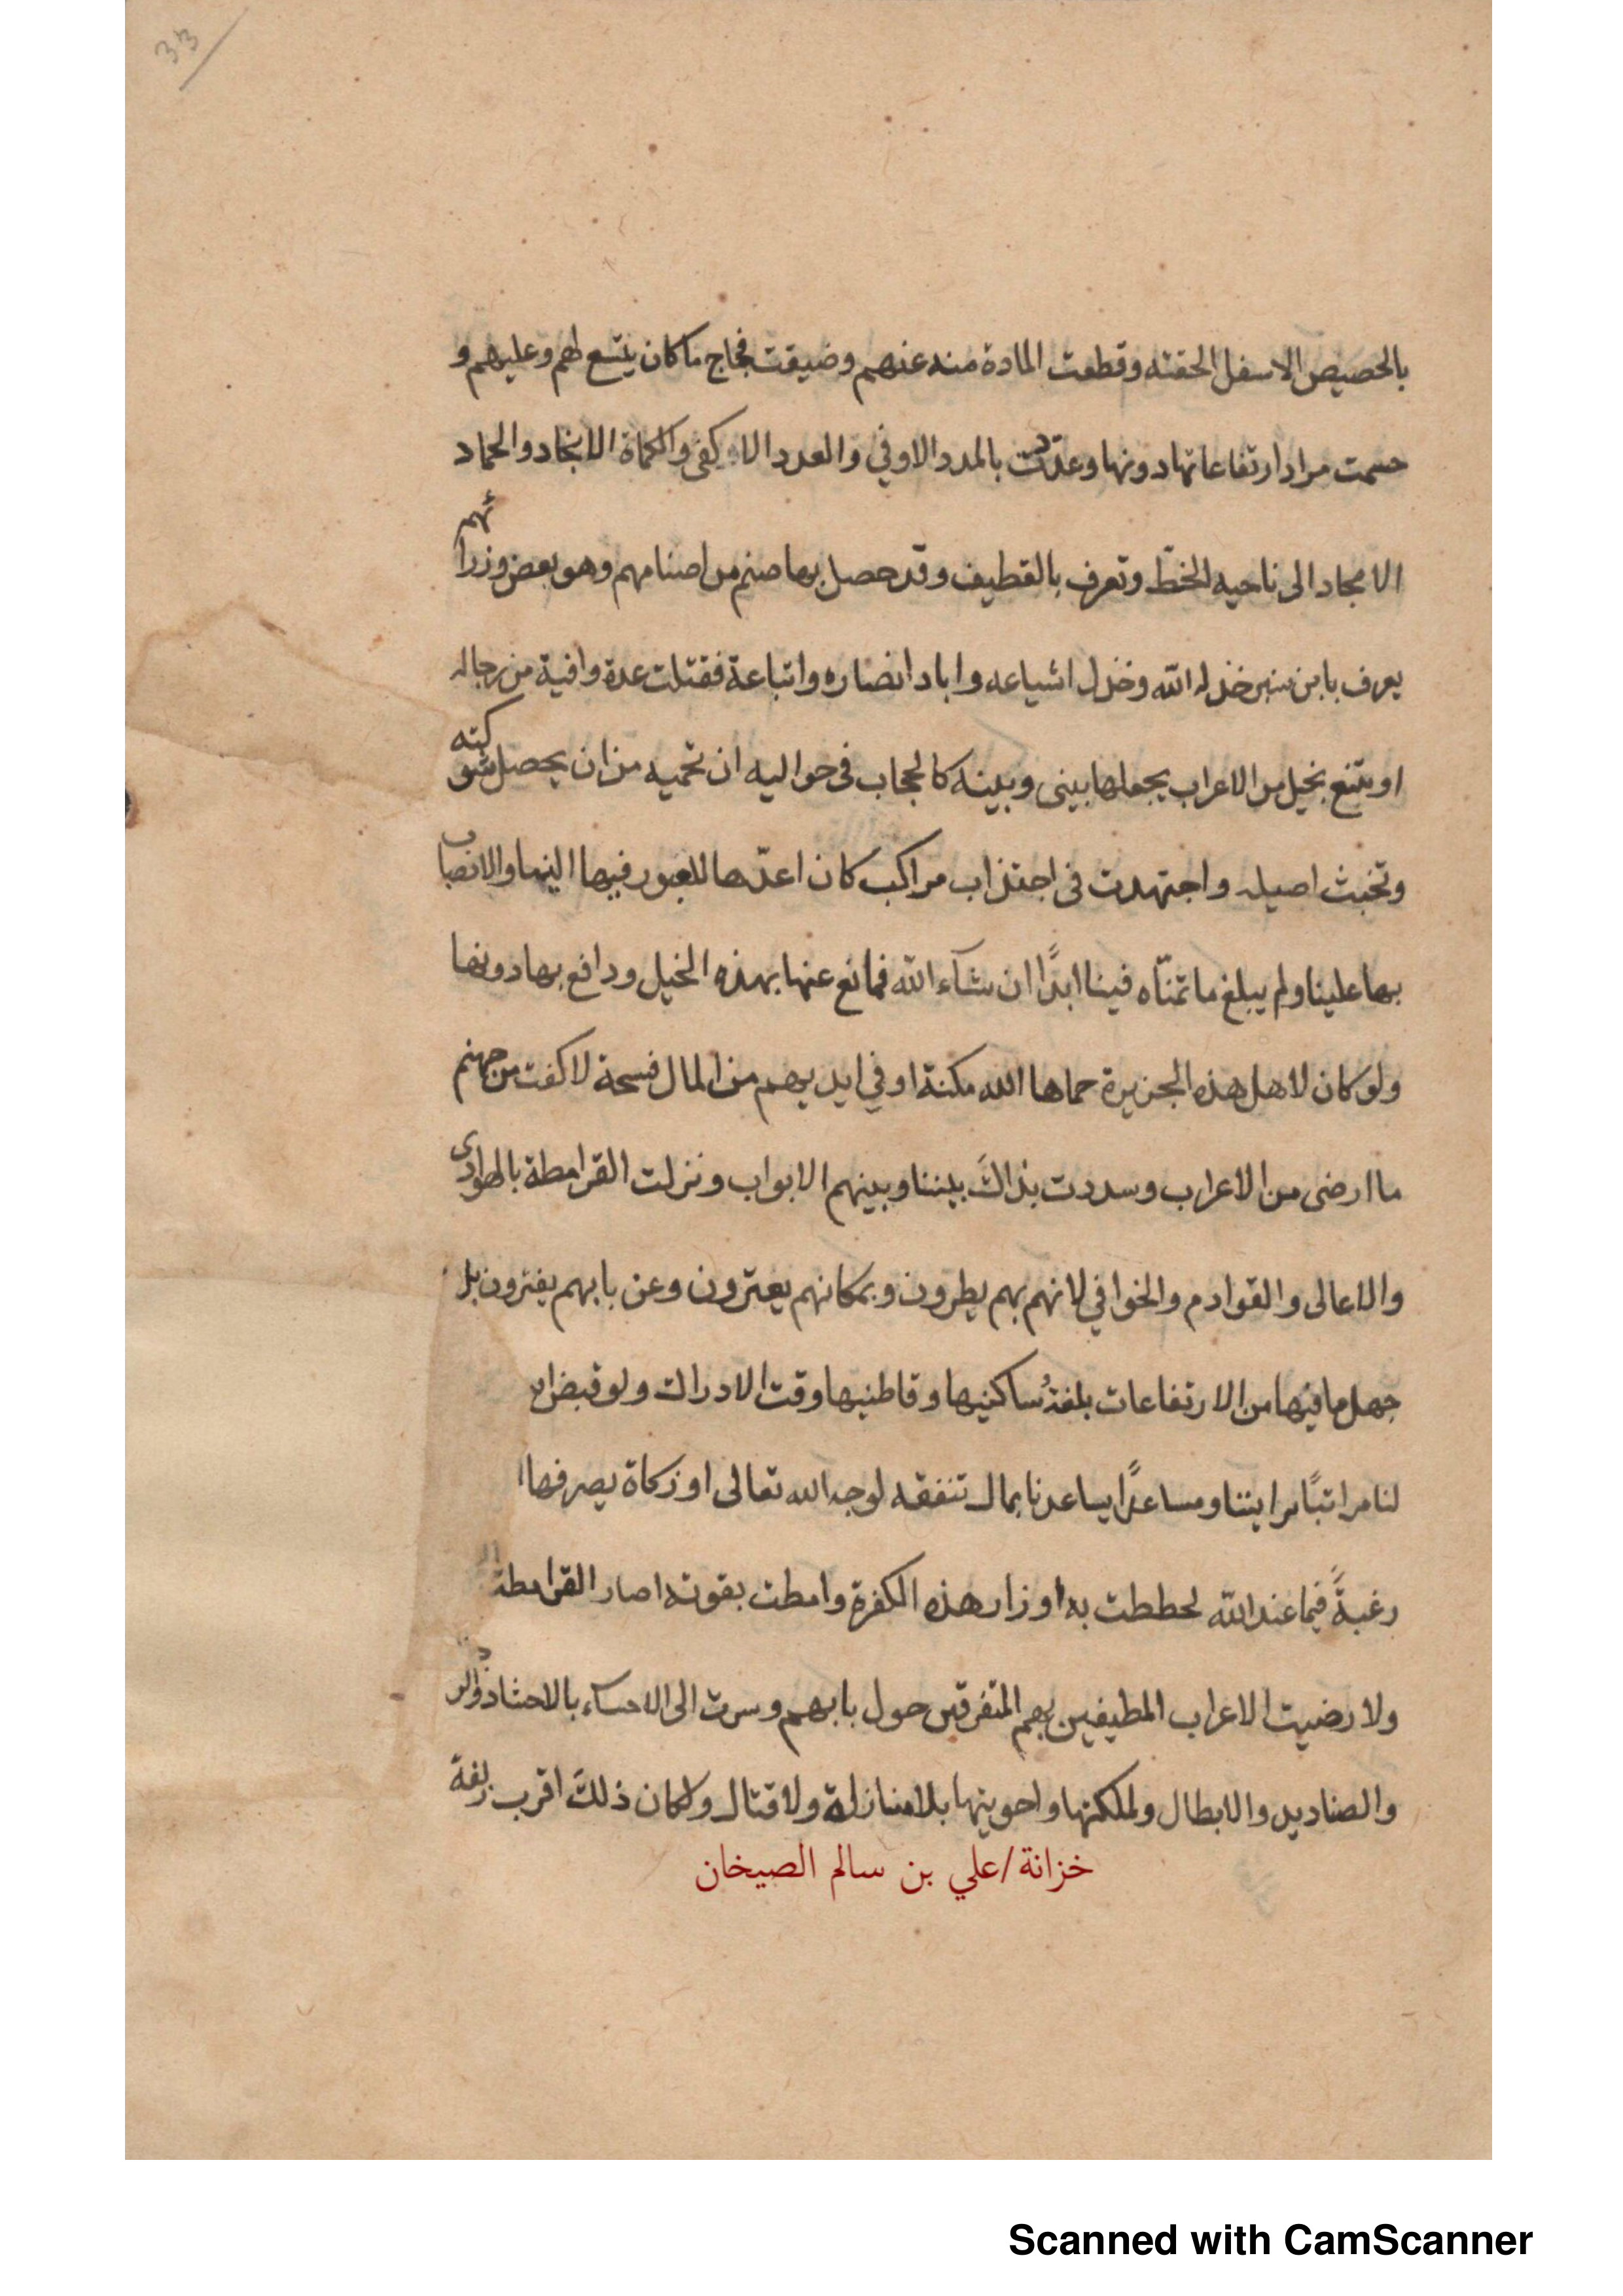 33
بالحصيص الاسفل الحقته وقطعت المادة منه عنهم وضيقت فجاج ما كان يتسع لهم وعليهم و
حسمت مراد ارتفاعاتها دونها وعدّدت بالمدد الاوفي والعدد الاكفى والكماة الانجاد والحماد
الامجاد الى ناحيه الخطّ وتعرف بالقطيف وقد حصل بها صنم من اصنامهم وهو بعض وزرائهم
يعرف بابن سنبر خذله الله وخذل اشياعه واباد انصاره واتباعة فقتلت عدة وافية من رجاله
او يمتنع بخيل من الاعراب يجعلها بينى وبينه كالحجاب فى حواليه ان تحميه من ان يحصل شوكته
وتخبث اصيله واجتهدت فى اجتذاب مراكب كان اعدّها للعبور فيها الينها والانصباب
بها علينا ولم يبلغ ما تمنّاه فينا ابدًا ان شآء الله فمانع عنها بهذه الخيل ودافع بها دونها
ولو كان لاهل هذه الجزيرة حماها الله مكنة او في ايديهم من المال فسحة لاكفت من جهنم
ما ارضى من الاعراب وسددت بذاك بيننا وبينهم الابواب ونزلت القرامطة بالهوادى
والاعالى والقوادم والخوافي لانهم بهم يطرون وبمكانهم يعترون وعن بابهم يفترون بل
جهل ما فيها من الارتفاعات بلغة ساكنيها وقاطنيها وقت الادراك ولو قبض الله
لنا مراتبًا يراتبنا ومساعدًا يساعدنا بمال تنفقه لوجه الله تعالى او زكاة يصرفها
رغبةً فيما عند الله لحططت به اوزار هذه الكفرة وامطت بقوته اصار القرامطة
ولا رضيت الاعراب المطيفين بهم المتفرقين حول بابهم وسرت الى الاحساء بالاحشاد
والصناديد والابطال ولملكتها واحويتها بلا منازلة ولا قتال ولكان ذلك اقرب زلفة
خزانة/علي بن سالم الصيخان
Scanned with CamScanner